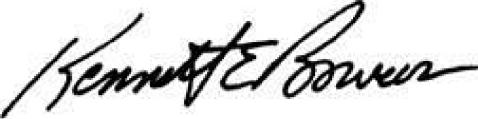 Kenneth E Bowen